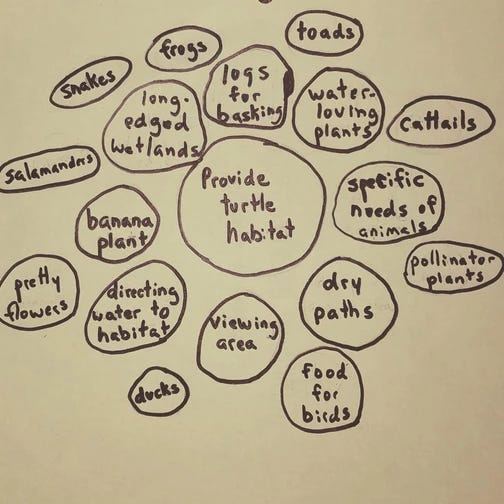 toads
frogs
snakes
logs
for
basking
long-
edged
wetlands
water-
loving
plants
cattails
salamanders
Provide
turtle
habitat
specific
needs of
animals
banana
plant
pollinator
plants
pretty
flowers
directing
water to
habitat
viewing
area
dry
paths
ducks
food
for
birds